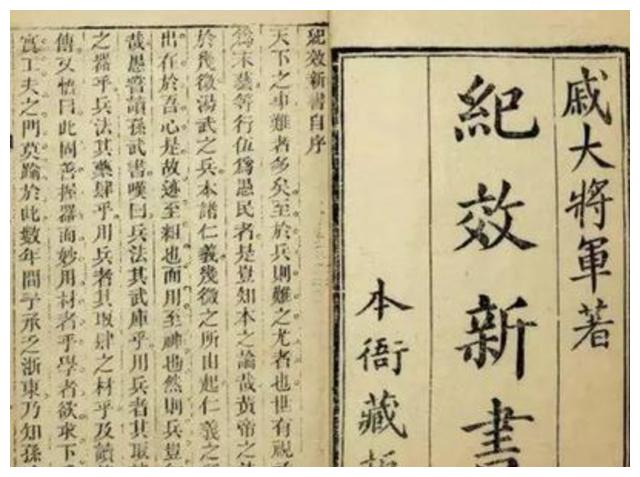 戚大將軍著
紀效新書
本衙藏板
紀效新書自序
天下之事難者多矣至於兵則難之尤者也世有視
為末藝等行伍為愚民者是豈知本之論哉黃帝之
於幾微湯武之兵本諸仁義幾微之所由起仁義之
出在於吾心是故迹至粗也而用至神也然則兵豈
哉愚嘗讀孫武書嘆曰兵法其武庫乎用兵者其取
之器乎兵法其藥肆乎用兵者其取肆之材乎及讀
傳又悟曰此固善握器而妙用材者乎學者欲求下
實工夫之門莫踰於此數年間予承乏浙東乃知孫